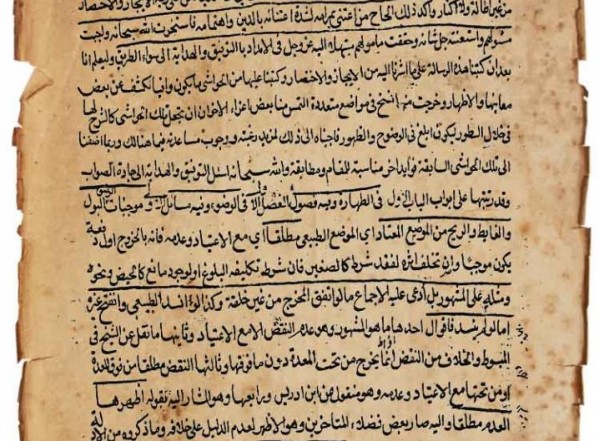 من غير اطالة ولا اكثار واكد ذلك الحاح من اعتني بمرامه لشدة اعتنائه بالدين واهتمامه فاستخرت الله سبحانه واجبت
مسئولهم واستعنته جل شانه وحققت مامولهم مبتهلا اليه عز وجل في الامداد بالتوفيق والهداية الى سواء الطريق وليعلم انا
بعد ان كتبنا هذه الرسالة على ما اشرنا اليه من الايجاز والاختصار وكتبنا عليها من الحواشي ما يكون وافيا بالكشف عن بعض
معانيها والاظهار وخرجت منها النسخ في مواضع متعددة التمس منا بعض اعزاء الاخوان ان نجعل تلك الحواشي كالشرح لها
في خلال السطور ليكون ابلغ في الوضوح والظهور فاجبناه الى ذلك لمزيد رغبته ووجوب مساعدته فيما هنالك وربما اضفنا
الى تلك الحواشي السابقة فوايد اخر مناسبة للمقام ومطابقة والله سبحانه اسئل التوفيق والهداية الى جادة الصواب
وقد رتبتها على ابواب الباب الاول في الطهارة وفيه فصول الفصل الاول في الوضوء وفيه مسائل الاولى موجبات الوضوء البول
والغايط والريح من الموضع المعتاد اي الموضع الطبيعي مطلقا اي مع الاعتياد وعدمه فانه بالخروج اول دفعة
يكون موجبا وان تخلف اثره لفقد شرط كالصغير فان شرط تكليفه البلوغ او لوجود مانع كالحيض ونحوه
ومثله على المشهور بل ادعى عليه الاجماع ما لو اتفق المخرج من غير خلقة وكذا لو انسد الطبيعي وانفتح غيره
اما لو لم ينسد فاقوال احدها ما هو المشهور وهو عدم النقض الا مع الاعتياد وثانيها ما نقل عن الشيخ في
المبسوط والخلاف من النقض بما يخرج من تحت المعدة دون ما فوقها وثالثها النقض مطلقا من فوق المعدة
او من تحتها مع الاعتياد وعدمه وهو منقول عن ابن ادريس ورابعها وهو المشار اليه بقوله اظهرها
العدم مطلقا واليه صار بعض فضلاء المتاخرين وهو الاظهر لعدم الدليل على خلافه وما ذكروه من الادلة